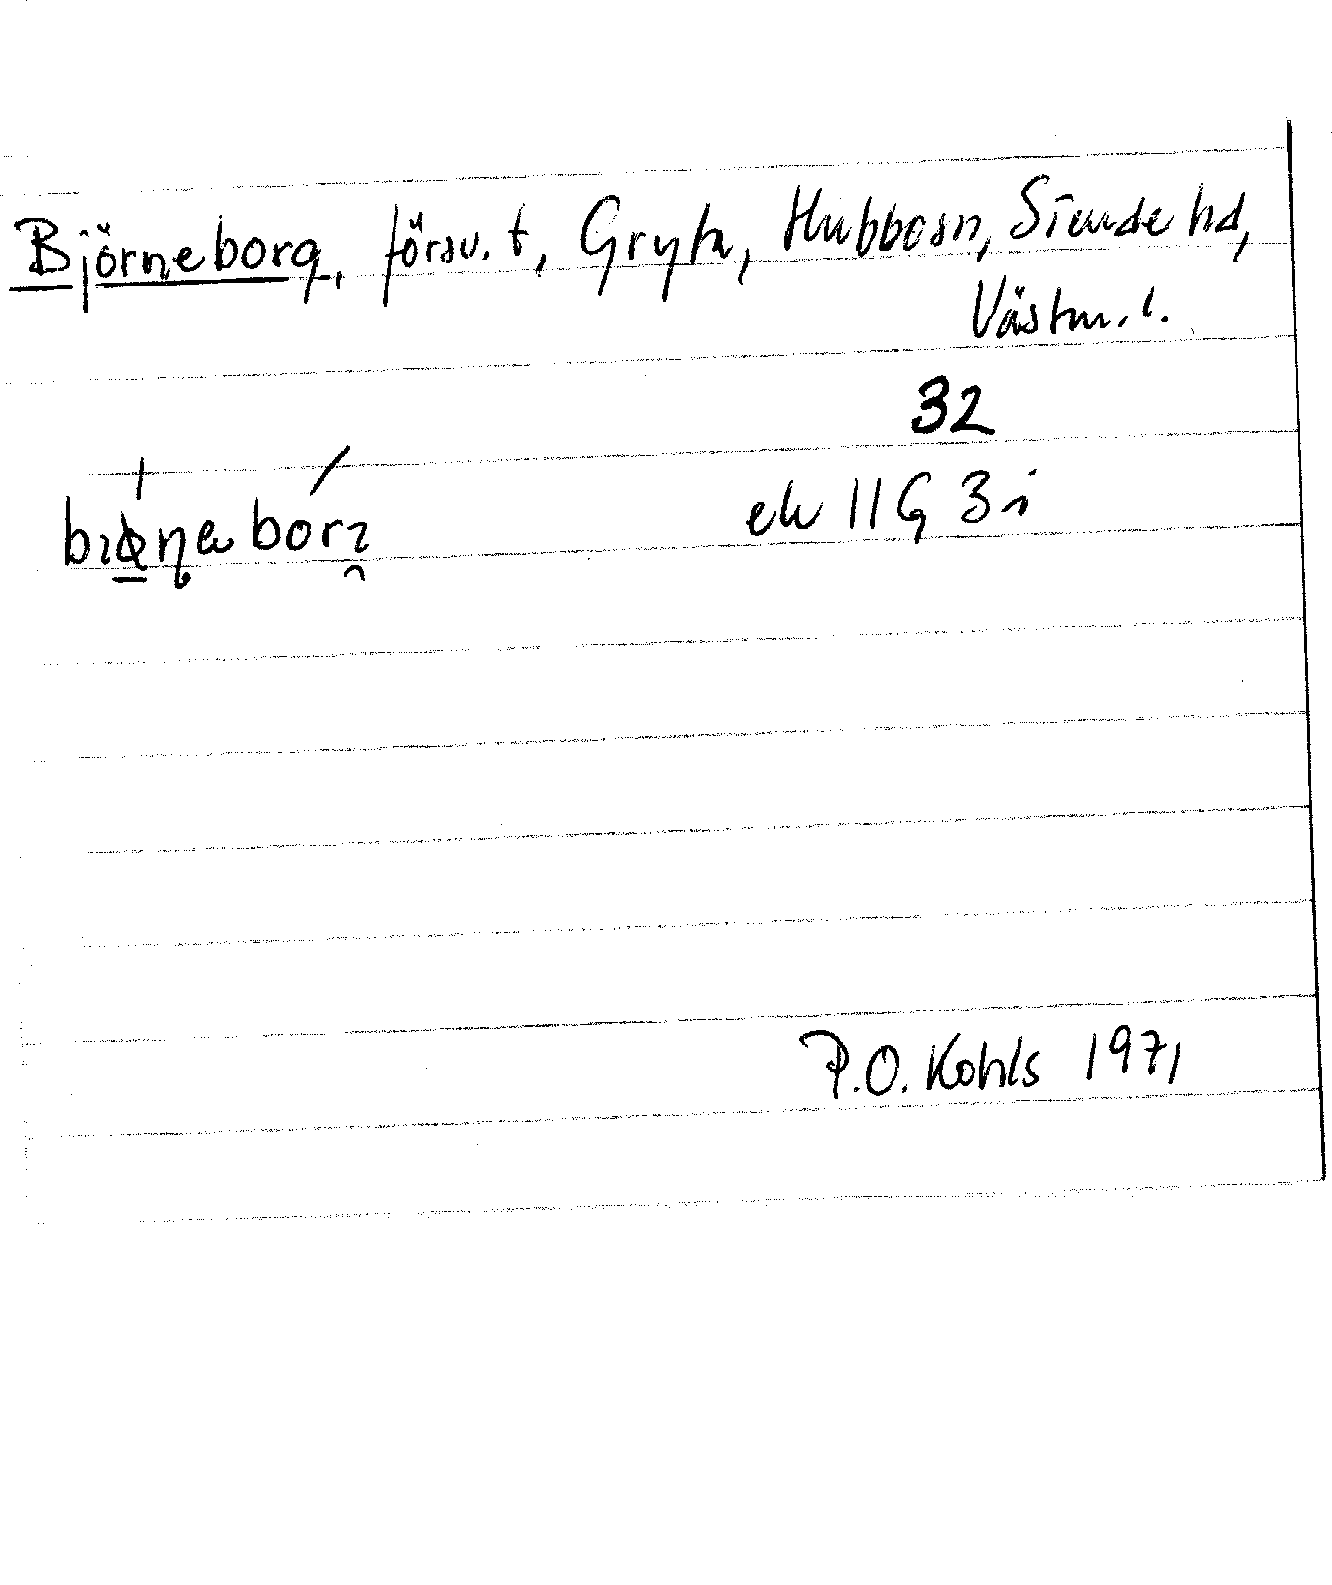 Björneborg, försv. t, Gryta, Hubbosn, Siende hd,
Västm. l.
32
ek 11G 3i
P.O. Kohls 1971